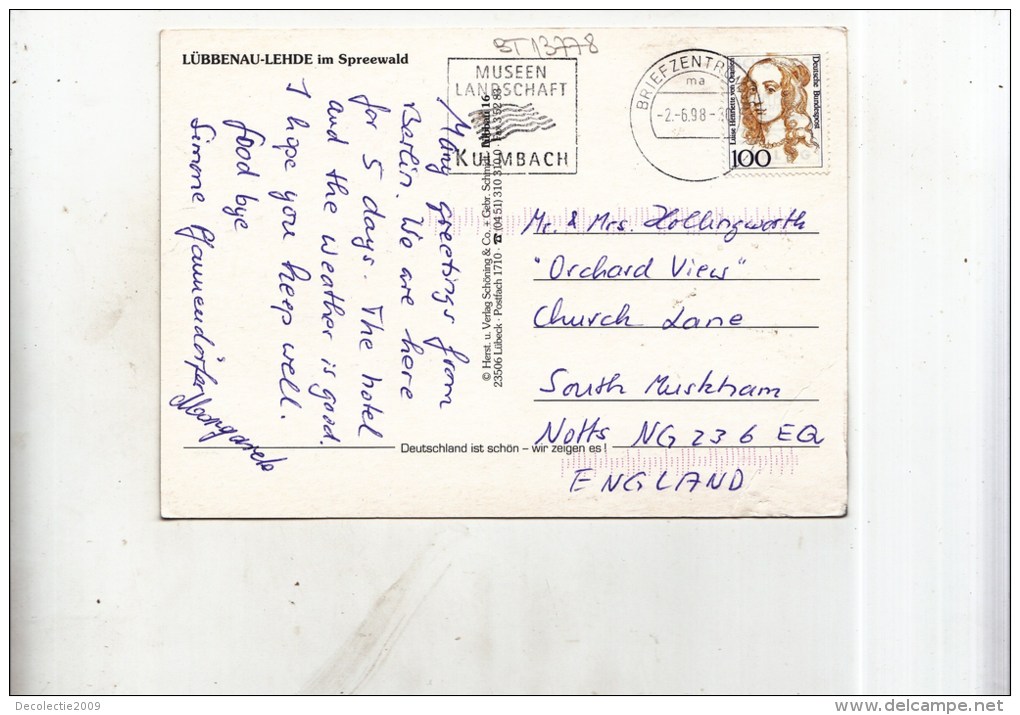 LÜBBENAU-LEHDE im Spreewald
BT 13778
MUSEEN
LANDSCHAFT
KULMBACH
BRIEFZENTRUM
ma
-2.-6.98-
Deutsche Bundespost
Luise Henriette von Oranien
100
Many greetings from
Berlin. We are here
for 5 days. The hotel
and the weather is good.
I hope you keep well.
Good bye
Simone Pfannendörfer
Margarete
© Herst. u. Verlag Schöning & Co. + Gebr. Schmidt
23506 Lübeck · Postfach 1710 · ☎ (04 51) 310 310
Mr. & Mrs. Hollingworth
"Orchard View"
Church Lane
South Muskham
Notts NG 23 6 EQ
ENGLAND
Deutschland ist schön – wir zeigen es!
Decolectie2009
delcampe.net